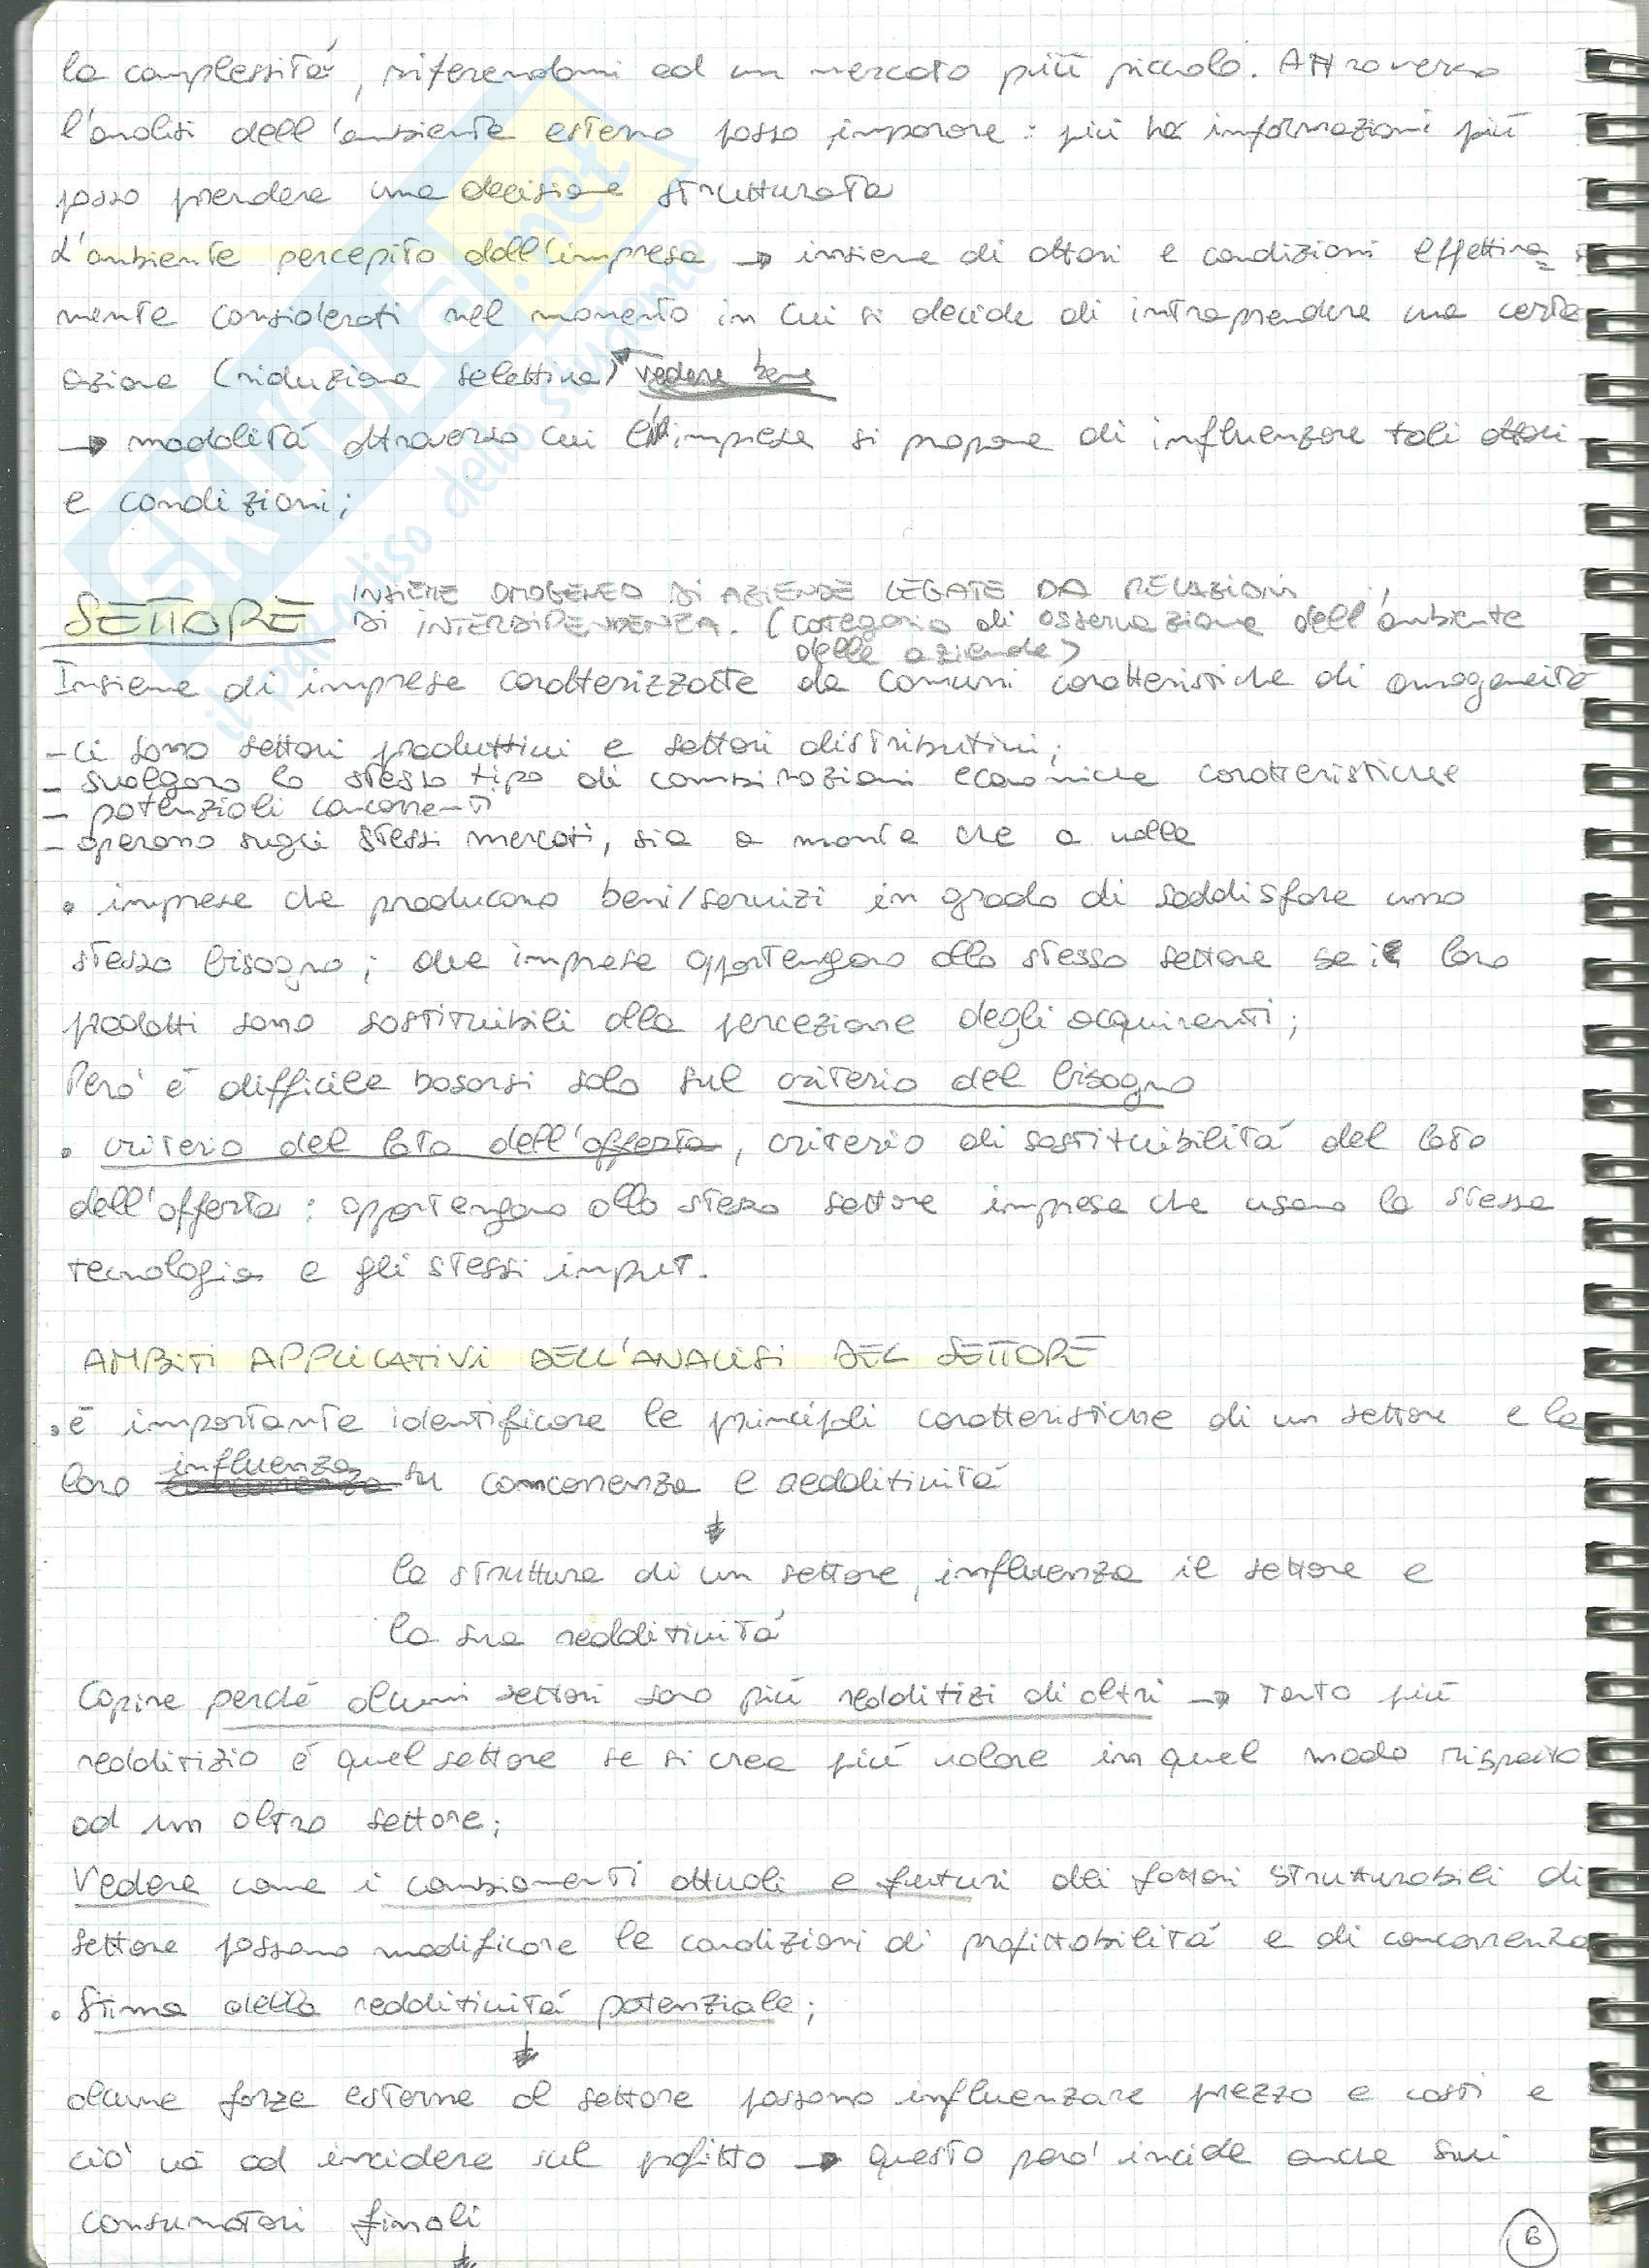 la complessità, riferendomi ad un mercato più piccolo. Attraverso
l'analisi dell'ambiente esterno posso imparare: più ho informazioni più
posso prendere una decisione strutturata
L'ambiente percepito dall'impresa → insieme di attori e condizioni effettiva=
mente considerati nel momento in cui si decide di intraprendere una certa
azione (riduzione selettiva) vedere bene
→ modalità attraverso cui l'impresa si propone di influenzare tali attori
e condizioni;
SETTORE INSIEME OMOGENEO DI AZIENDE LEGATE DA RELAZIONI
DI INTERDIPENDENZA. (categoria di osservazione dell'ambiente
delle aziende)
Insieme di imprese caratterizzate da comuni caratteristiche di omogeneità
- ci sono settori produttivi e settori distributivi;
- svolgono lo stesso tipo di combinazioni economiche caratteristiche
- potenziali concorrenti
- operano sugli stessi mercati, sia a monte che a valle
• imprese che producono beni/servizi in grado di soddisfare uno
stesso bisogno; due imprese appartengono allo stesso settore se i loro
prodotti sono sostituibili alla percezione degli acquirenti;
Però è difficile basarsi solo sul criterio del bisogno
• criterio del lato dell'offerta, criterio di sostituibilità del lato
dell'offerta: appartengono allo stesso settore imprese che usano la stessa
tecnologia e gli stessi input.
AMBITI APPLICATIVI DELL'ANALISI DEL SETTORE
• è importante identificare le principali caratteristiche di un settore e la
loro influenza su concorrenza e redditività
↓
la struttura di un settore, influenza il settore e
la sua redditività
Capire perché alcuni settori sono più redditizi di altri → Tanto più
redditizio è quel settore se si crea più valore in quel modo rispetto
ad un altro settore;
Vedere come i cambiamenti attuali e futuri dei fattori strutturabili di
settore possono modificare le condizioni di profittabilità e di concorrenza
• Stima della redditività potenziale;
↓
alcune forze esterne al settore possono influenzare prezzo e costi e
ciò va ad incidere sul profitto → questo però incide anche sui
consumatori finali
↓
6
SKUOLA.net
il paradiso dello studente